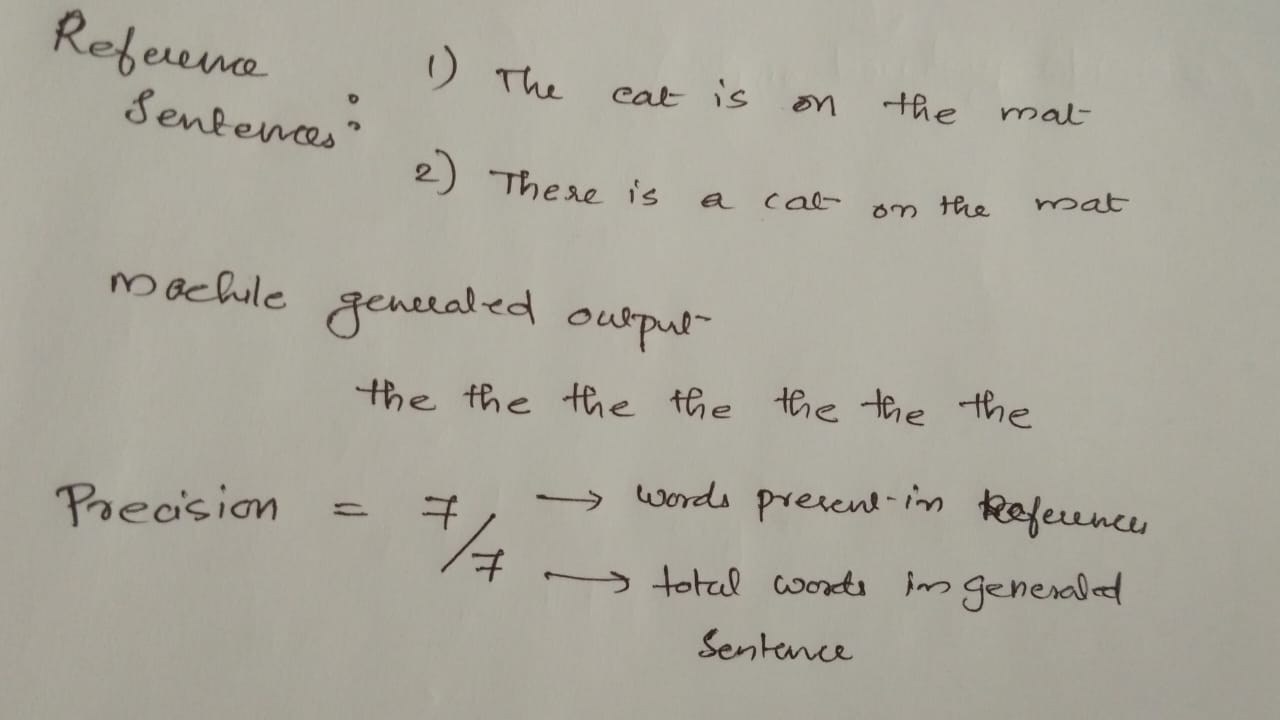 Reference
Sentences:
1) The cat is on the mat
2) There is a cat on the mat
Machine generated output
the the the the the the the
Precision = 7/7
→ words present in References
→ total words in generated
Sentence